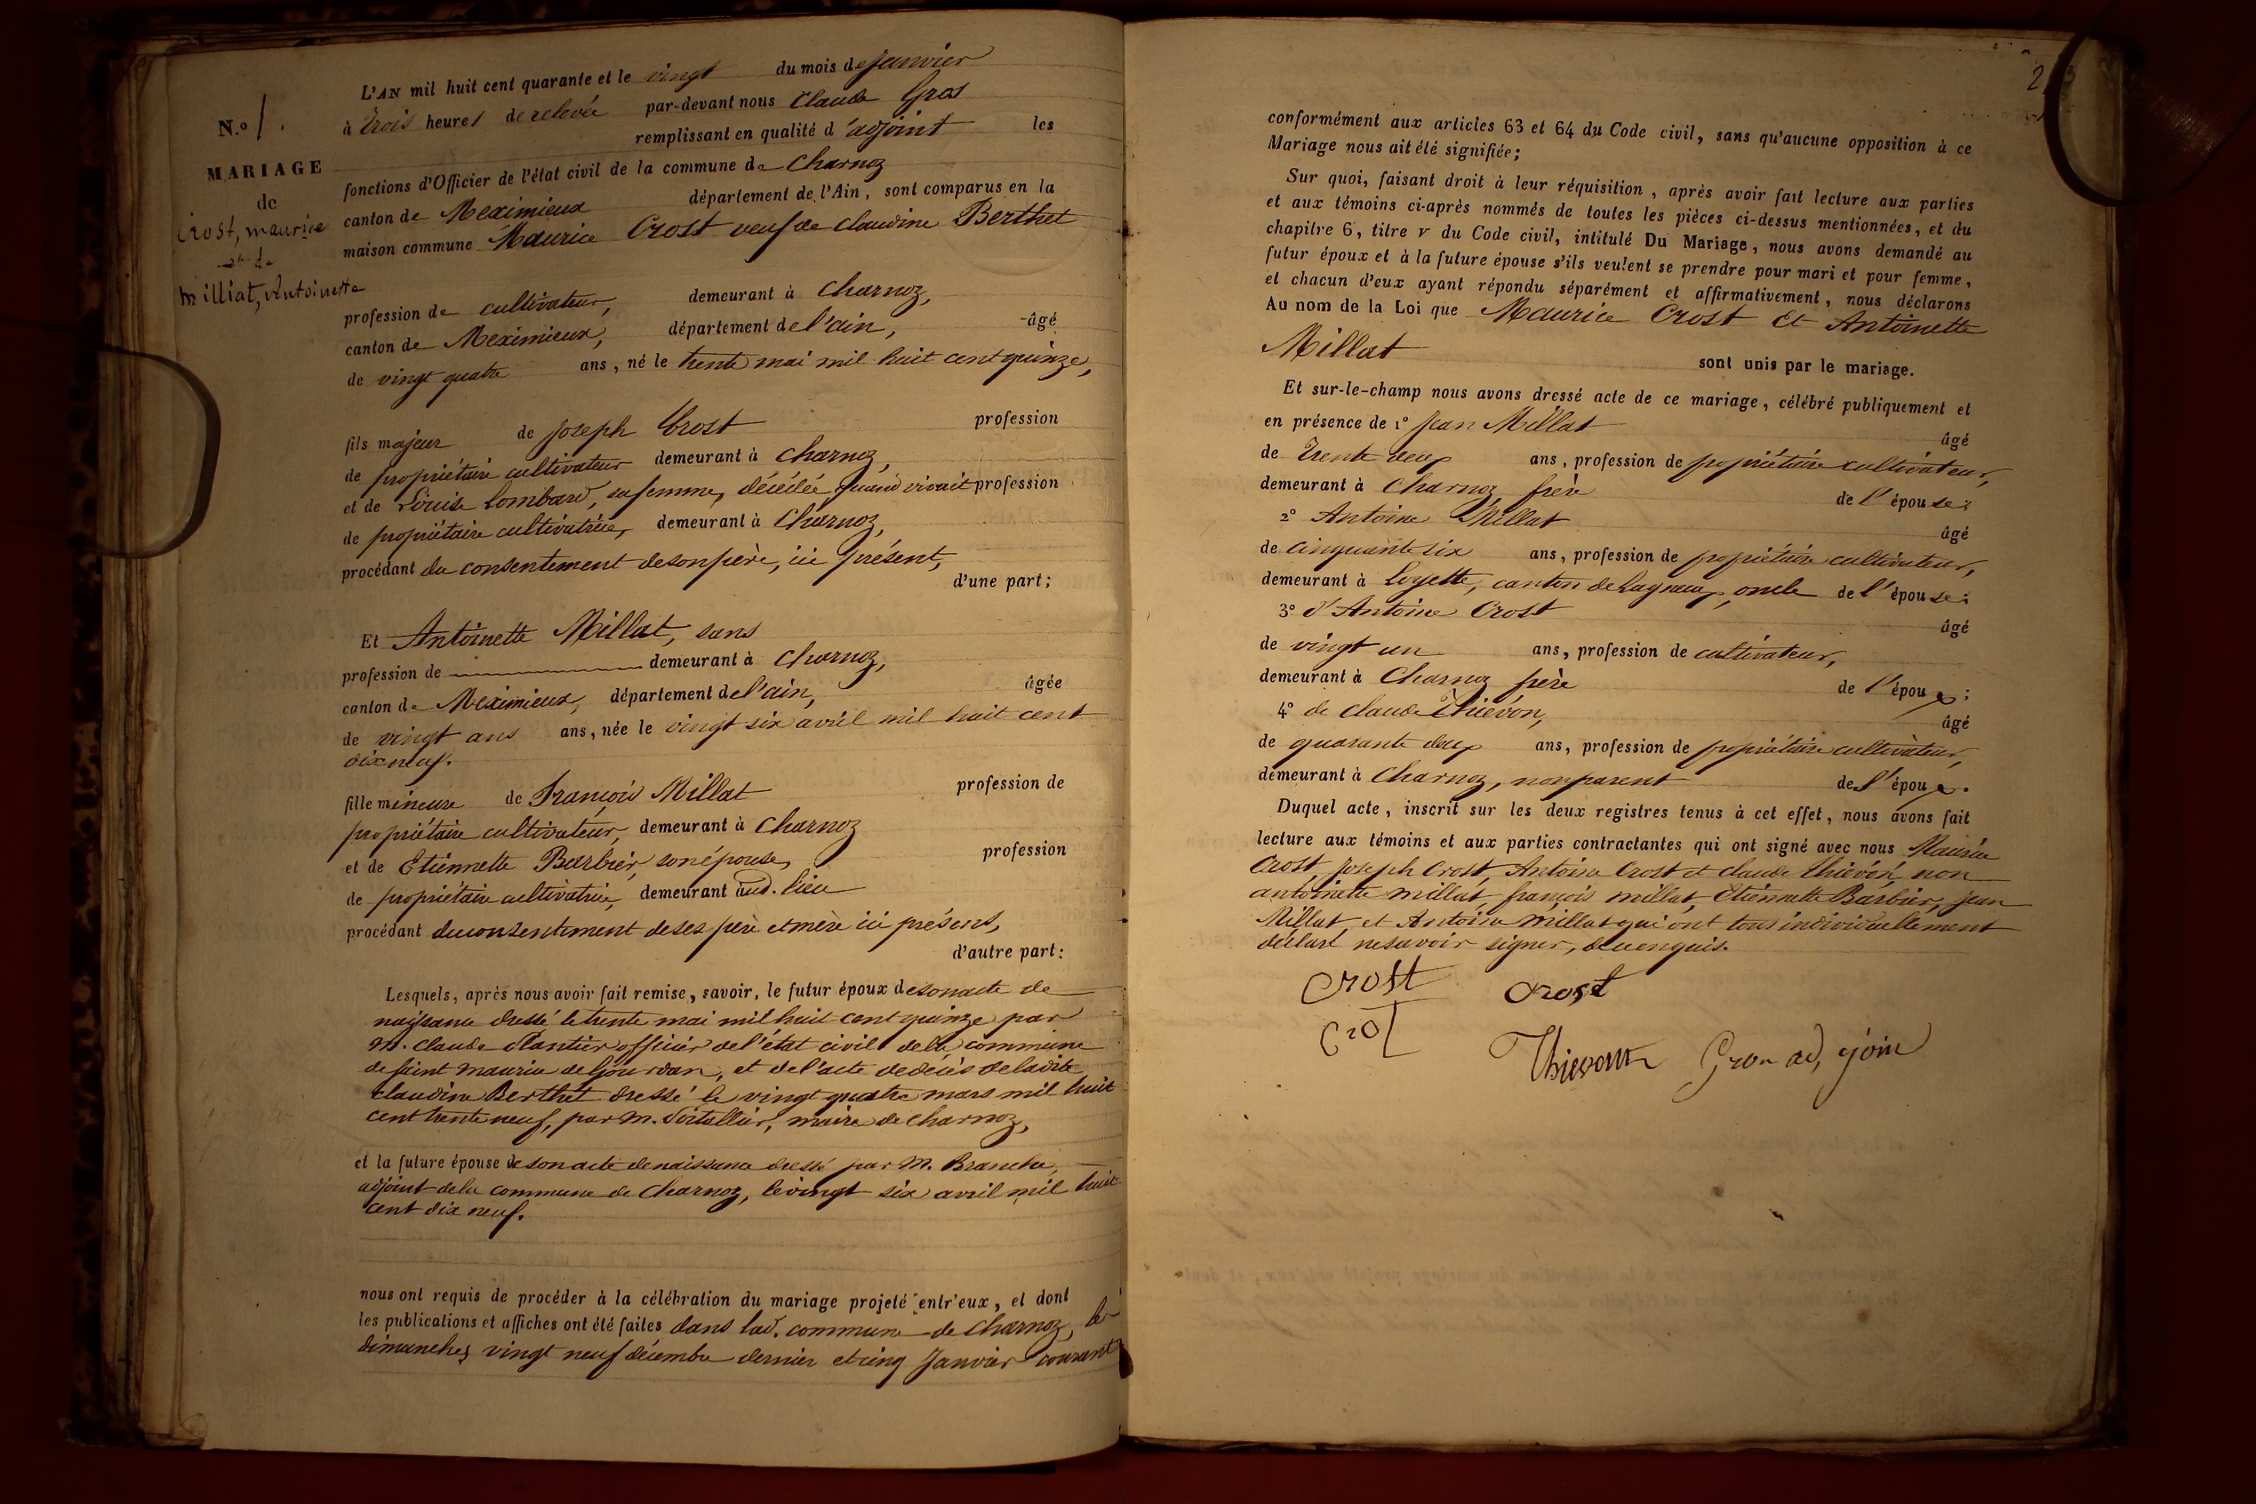 N.o 1.
MARIAGE
de
Crost, maurice
et de
Milliat, Antoinette
L'AN mil huit cent quarante et le vingt du mois de Janvier
à trois heures de relevée par-devant nous Claude Gros
remplissant en qualité d'adjoint les
fonctions d'Officier de l'état civil de la commune de Charnoz
canton de Meximieux département de l'Ain, sont comparus en la
maison commune Maurice Crost veuf de Claudine Berthet
profession de cultivateur, demeurant à Charnoz,
canton de Meximieux, département de l'ain, âgé
de vingt quatre ans, né le trente mai mil huit cent quinze,
fils majeur de Joseph Crost profession
de propriétaire cultivateur demeurant à Charnoz,
et de Louise Lombard, sa femme, décédée quand vivait profession
de propriétaire cultivatrice, demeurant à Charnoz,
procédant du consentement de son père, ici présent,
d'une part;
Et Antoinette Millat, sans
profession de demeurant à Charnoz,
canton de Meximieux, département de l'ain, âgée
de vingt ans ans, née le vingt six avril mil huit cent
dix neuf.
fille mineure de François Millat profession de
propriétaire cultivateur, demeurant à Charnoz
et de Etiennette Barbier, son épouse, profession
de propriétaire cultivatrice, demeurant aud. lieu
procédant du consentement de ses père et mère ici présens,
d'autre part:
Lesquels, après nous avoir fait remise, savoir, le futur époux de son acte de
naissance dressé le trente mai mil huit cent quinze par
M. Claude Plantier officier de l'état civil de la commune
de Saint maurice de Gourdan, et de l'acte de décès de ladite
Claudine Berthet dressé le vingt quatre mars mil huit
cent trente neuf, par M. maire de Charnoz,
et la future épouse de son acte de naissance dressé par M. Branche,
adjoint de la commune de Charnoz, le vingt six avril mil huit
cent dix neuf.
nous ont requis de procéder à la célébration du mariage projeté entr'eux, et dont
les publications et affiches ont été faites dans lad. commune de Charnoz, les
dimanches vingt neuf décembre dernier et cinq Janvier courant
conformément aux articles 63 et 64 du Code civil, sans qu'aucune opposition à ce
Mariage nous ait été signifiée;
Sur quoi, faisant droit à leur réquisition, après avoir fait lecture aux parties
et aux témoins ci-après nommés de toutes les pièces ci-dessus mentionnées, et du
chapitre 6, titre v du Code civil, intitulé Du Mariage, nous avons demandé au
futur époux et à la future épouse s'ils veulent se prendre pour mari et pour femme,
et chacun d'eux ayant répondu séparément et affirmativement, nous déclarons
Au nom de la Loi que Maurice Crost et Antoinette
Millat sont unis par le mariage.
Et sur-le-champ nous avons dressé acte de ce mariage, célébré publiquement et
en présence de 1o Jean Millat âgé
de Trente deux ans, profession de propriétaire cultivateur,
demeurant à Charnoz frère de l'épouse;
2o Antoine Millat âgé
de cinquante six ans, profession de propriétaire cultivateur,
demeurant à Loyette, canton de Lagnieux, oncle de l'épouse;
3o d'Antoine Crost âgé
de vingt un ans, profession de cultivateur,
demeurant à Charnoz frère de l'époux;
4o de Claude Thiévon, âgé
de quarante deux ans, profession de propriétaire cultivateur,
demeurant à Charnoz, non parent de l'époux.
Duquel acte, inscrit sur les deux registres tenus à cet effet, nous avons fait
lecture aux témoins et aux parties contractantes qui ont signé avec nous Maurice
Crost, Joseph Crost, Antoine Crost et Claude Thiévon, non
antoinette millat, françois millat, Etiennette Barbier, Jean
Millat, et Antoine Millat qui ont tous individuellement
déclaré ne savoir signer, de ce enquis.
Crost Crost
Crot
Thievon Gros adjoin